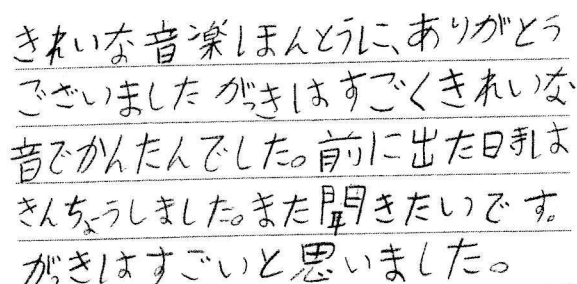 きれいな音楽ほんとうに、ありがとう
ございました がっきはすごくきれいな
音でかんたんでした。前に出た時は
きんちょうしました。また聞きたいです。
がっきはすごいと思いました。